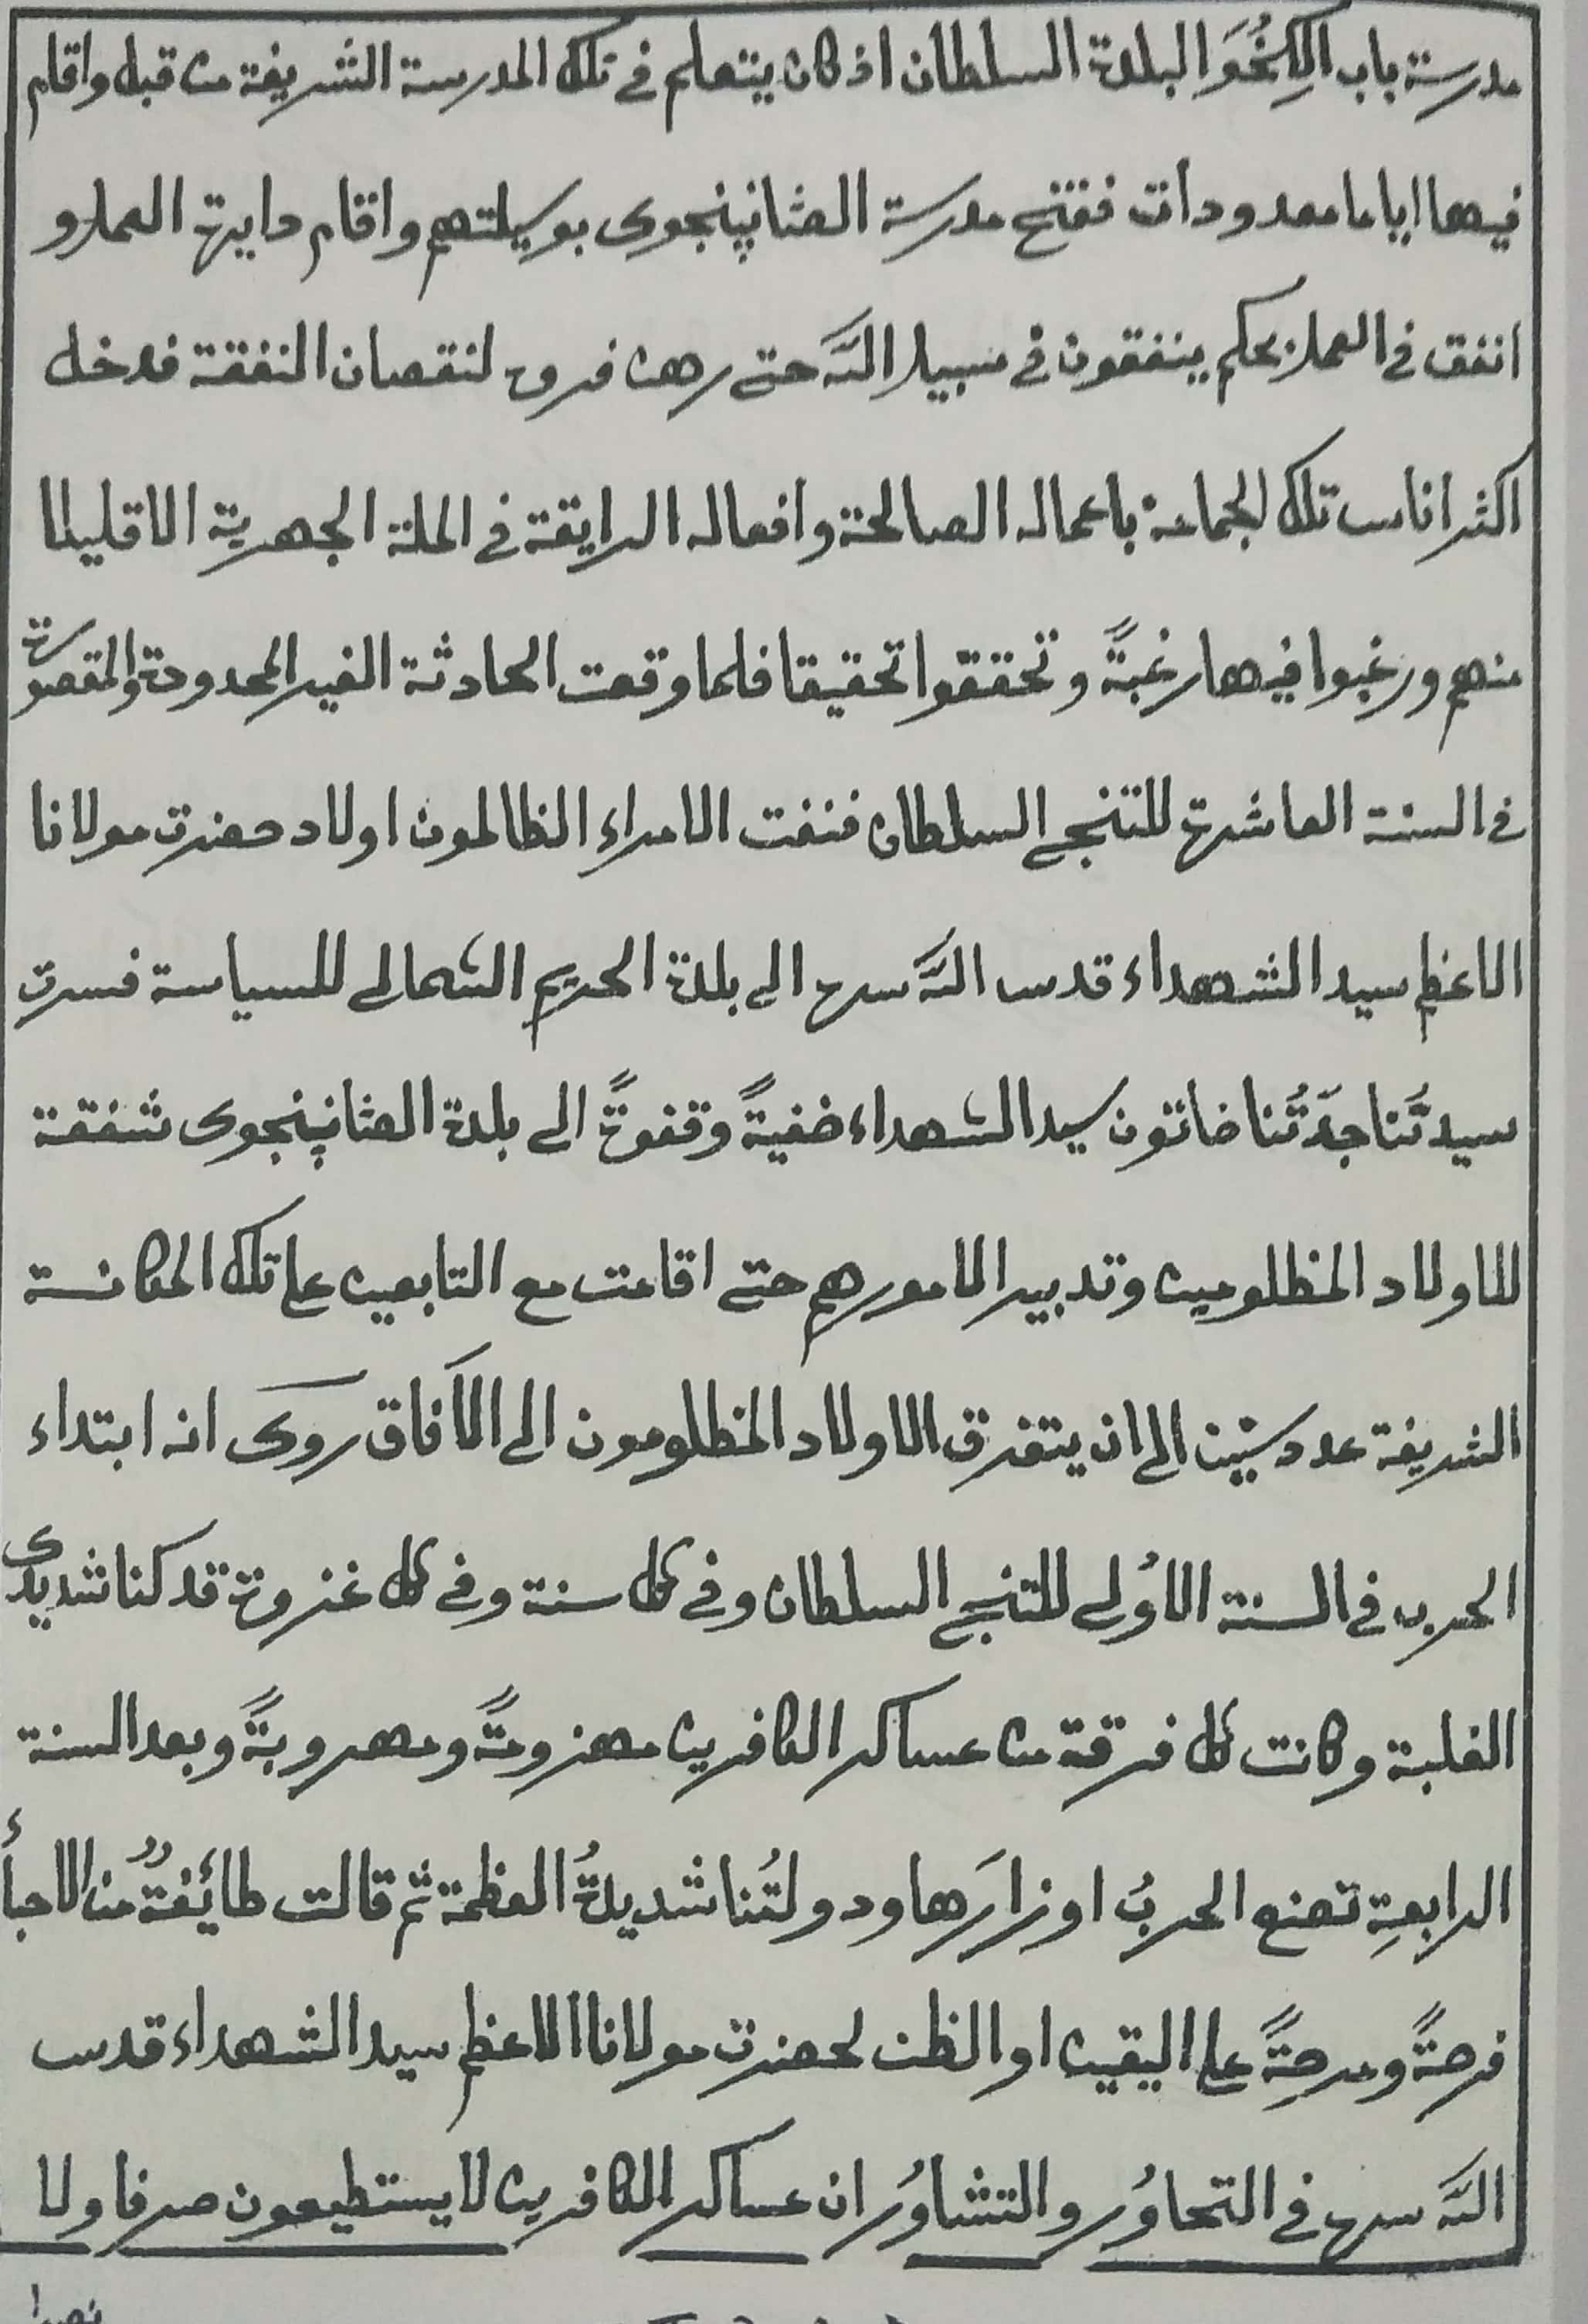 مدرسة باب الِكنُحُوَا لبلدة السلطان اذ كان يتعلم في تلك المدرسة الشريفة من قبل واقام
فيها اياما معدودات ففتح مدرسة العثانپنجوى بوسيلتهم واقام دايرة العمل و
انفق في العمل بحكم ينفقون في سبيل اللّٰه حتى رهن فروه لنقصان النفقة فدخل
اكثر اناس تلك الجماعة باعماله الصالحة وافعاله الرايقة في الملة الجهرية الا قليلا
منهم ورغبوا فيها رغبةً وتحققوا تحقيقا فلما وقعت الحادثة الغير المحدودة والمقصورة
في السنة العاشرة للتنجى السلطان فنفت الامراء الظالمون اولاد حضرت مولانا
الاعظم سيد الشهداء قدس اللّٰه سره الى بلدة الحريم الشمالى للسياسة فسرت
سيدتُنا جدَتُنا خاتون سيد الشهداء خفيةً وقفوةً الى بلدة العثانپنجوى شفقة
للاولاد المظلومين وتدبير الامورهم حتى اقامت مع التابعين على تلك المكانة
الشريفة عدد سنين الى ان يتفرق الاولاد المظلومون الى الآفاق روى انه ابتداء
الحرب في السنة الاُولى للتنجى السلطان وفي كل سنة وفي كل غزوة قد كنا شديدى
الغلبة وكانت كل فرقة من عساكر الكافرين مهزومةً ومهروبةً وبعد السنة
الرابعةِ تضع الحربُ اوزارَها ودولتُنا شديدةُ العظمة ثم قالت طائفةٌ من الاحبأء
فرحةً ومرحةً على اليقين او الظن لحضرت مولانا الاعظم سيد الشهداء قدس
اللّٰه سره في التحاوُر والتشاوُر ان عساكر الكافرين لا يستطيعون صرفا ولا
نصرا